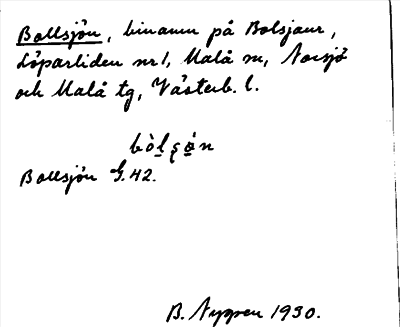 Bollsjön, binamn på Bolsjaur,
Löparliden nr 1, Malå sn, Norsjö
och Malå tg, Västerb. l.
bòlʂò̱n
Bollsjön G. 42.
B. Nyppen 1930.